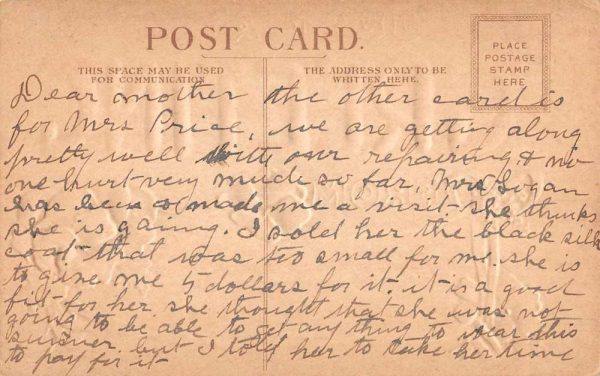 POST CARD.
THIS SPACE MAY BE USED
FOR COMMUNICATION
THE ADDRESS ONLY TO BE
WRITTEN HERE.
PLACE
POSTAGE
STAMP
HERE
Dear mother the other card is
for Mrs Price, we are getting along
pretty well with our repairing & no
one hurt very much so far. Mrs Logan
has been & made me a visit she thinks
she is gaining. I sold her the black silk
coat that was too small for me. she is
to give me 5 dollars for it. it is a good
fit for her. she thought that she was not
going to be able to get any thing to wear this
summer but I told her to take her time
to pay for it